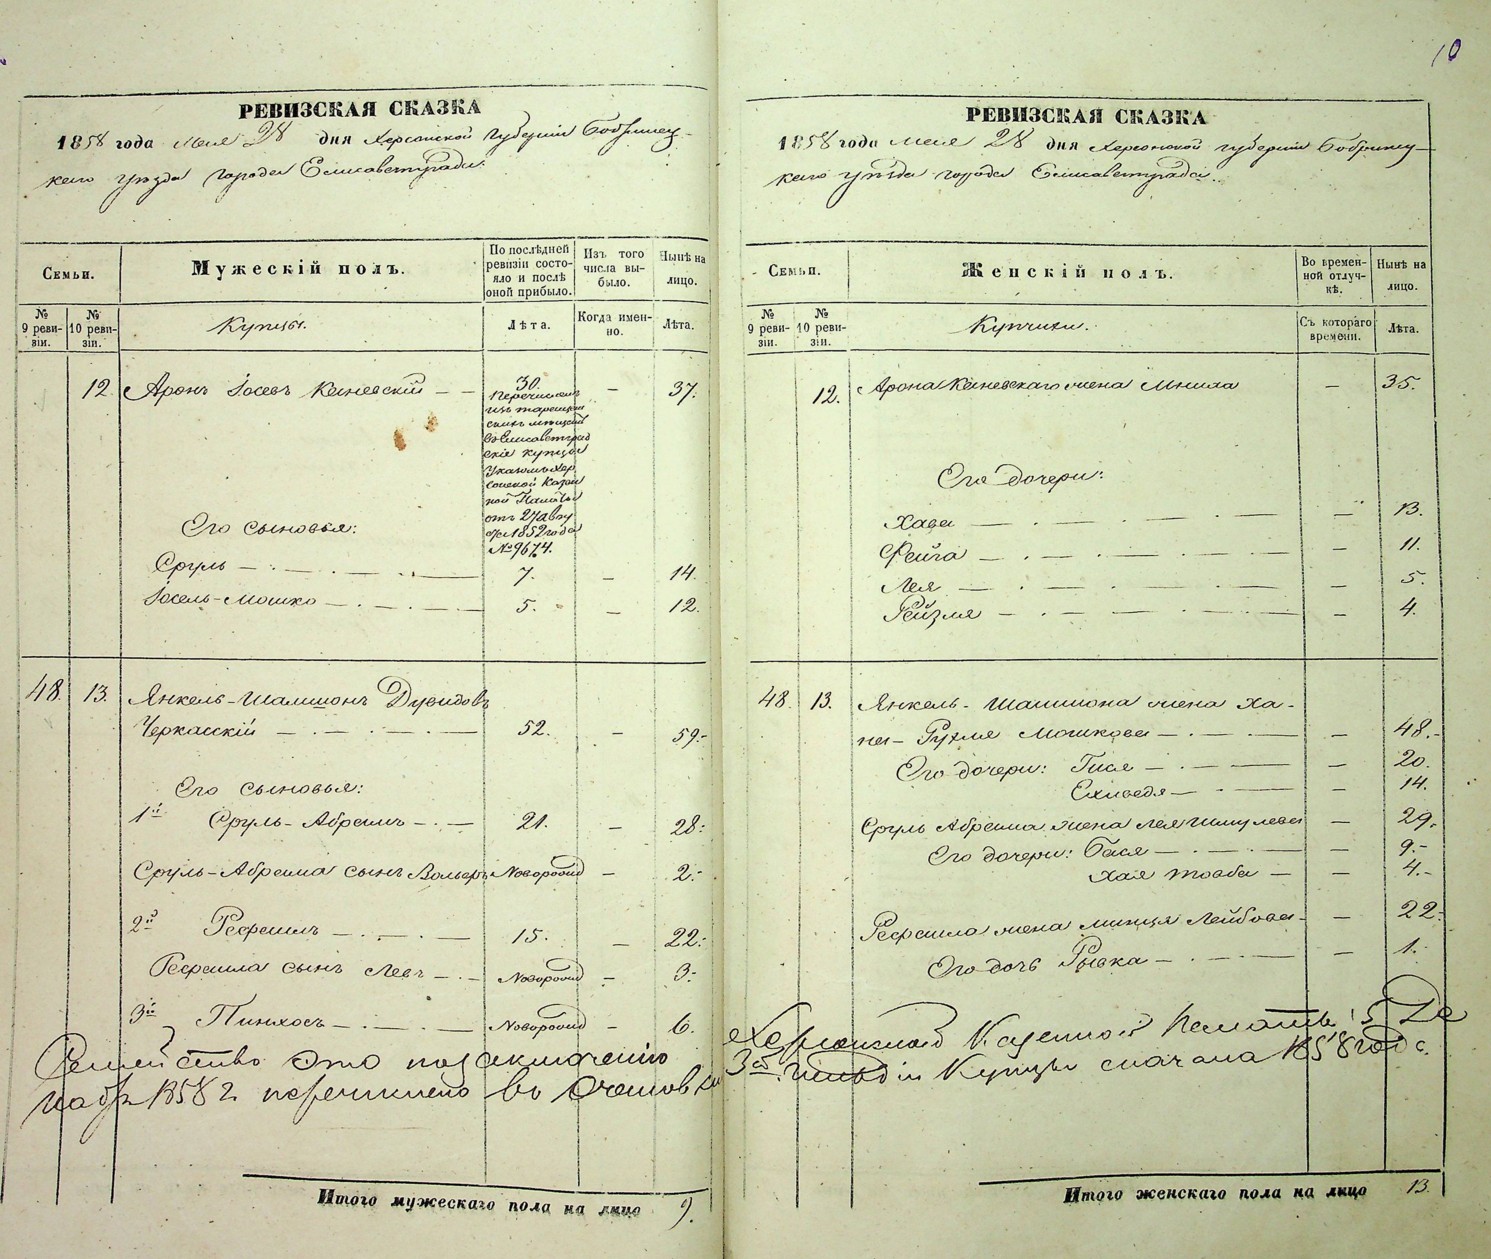 10
РЕВИЗСКАЯ СКАЗКА
1858 года мая 28 дня Херсонской губернии Бобринец-
каго уѣзда города Елисаветграда.
Семьи.
Мужескій полъ.
По послѣдней ревизіи состо-
яло и послѣ
оной прибыло.
Изъ того
числа вы-
было.
Нынѣ на
лицо.
№
9 реви-
зіи.
№
10 реви-
зіи.
Купцы.
Лѣта.
Когда имен-
но.
Лѣта.
12. Аронъ Іосевъ Каневскій — — 30. — 37.
Перечисленъ
изъ
мѣщанъ
въ Елисаветград
скіе купцы
Указомъ Хер
сонской Казен
ной Палаты
отъ 27 авгу
ста 1852 года
№ 9674.
Его сыновья:
Сруль — 7. — 14.
Іосель-Мошко — 5. — 12.
48. 13. Янкель-Шамшонъ Дувидовъ
Черкасскій — 52. — 59.-
Его сыновья:
1й Сруль-Абрамъ — 21. — 28:
Сруль-Абрама сынъ Вольвъ Новорожд — 2.-
2й Рефаилъ — 15. — 22:
Рефаила сынъ Левъ — Новорожд — 3-
3й Пинхосъ — Новорожд — 6.
Семейство это по
1858 г. перечислено въ
Итого мужескаго пола на лицо 9.
РЕВИЗСКАЯ СКАЗКА
1858 года мая 28 дня Херсонской губерніи Бобринец-
каго уѣзда города Елисаветграда.
Семьи.
Женскій полъ.
Во времен-
ной отлуч-
кѣ.
Нынѣ на
лицо.
№
9 реви-
зіи.
№
10 реви-
зіи.
Купчихи.
Съ котораго
времени.
Лѣта.
12. Арона Каневскаго жена — 35.
Его дочери:
Хава — 13.
Фейга — 11.
Лея — 5.
Рейзля — 4.
48. 13. Янкель-Шамшона жена Ха-
на-Рухля Мошкова — 48.-
Его дочери: Гися — 20.
Ехиведя — 14.
Сруль Абрама жена Лея Шмулева — 29.
Его дочери: Бася — 9.-
Хая Товба — 4.-
Рефаила жена Минця Лейбова — 22:
Его дочь Рывка — 1.
Херсонской Казенной Палаты
3й гильдіи Купцы сначала 1858 года
Итого женскаго пола на лицо 13.